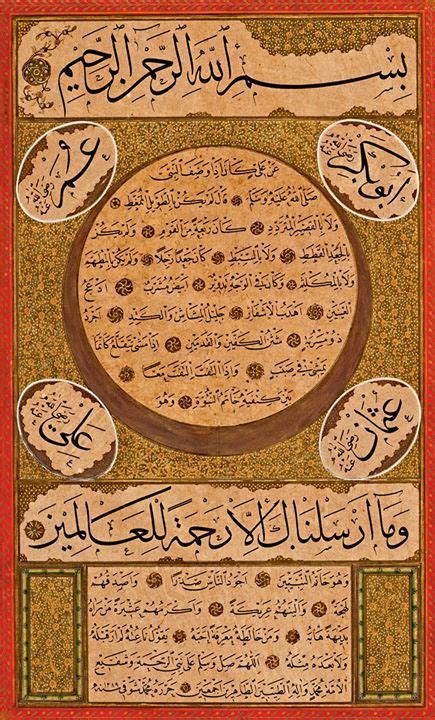 بسم الله الرحمن الرحيم
ابو بكر رضي الله عنه
عمر رضي الله عنه
عن علي كان اذا وصف النبي
صلى الله عليه وسلم قال لم يكن بالطويل الممغط
ولا بالقصير المتردد كان ربعة من القوم ولم يكن
بالجعد القطط ولا بالسبط كان جعدا رجلا ولم يكن بالمطهم
ولا بالمكلثم وكان في الوجه تدوير ابيض مشرب ادعج
العينين اهدب الاشفار جليل المشاش والكتد اجرد
ذو مسربة شثن الكفين والقدمين اذا مشى تقلع كانما
يمشي في صبب واذا التفت التفت معا
بين كتفيه خاتم النبوة وهو
عثمان رضي الله عنه
علي رضي الله عنه
وما ارسلناك الا رحمة للعالمين
وهو خاتم النبيين اجود الناس صدرا واصدقهم
لهجة والينهم عريكة واكرمهم عشيرة من رآه
بديهة هابه ومن خالطه معرفة احبه يقول ناعته لم ار قبله
ولا بعده مثله اللهم صل وسلم على نبي الرحمة وشفيع
الامة محمد وآله الطيبين الطاهرين اجمعين حرره محمد شوقي